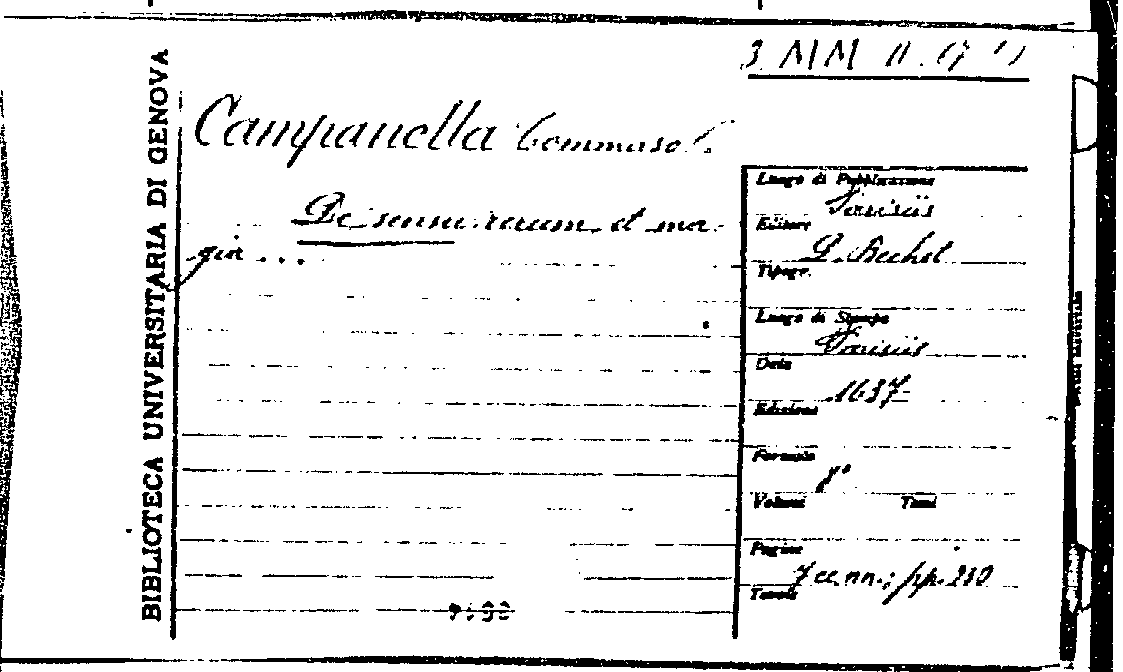 BIBLIOTECA UNIVERSITARIA DI GENOVA
3. MM II.
Campanella Tommaso
De sensu rerum et ma-
gia ...
Luogo di Pubblicazione
Parisiis
Editore
Tipogr.
Luogo di Stampa
Parisiis
Data
1637
Edizione
Formato
Volumi Tomi
Pagine
7 cc. nn.; pp.
Tavole